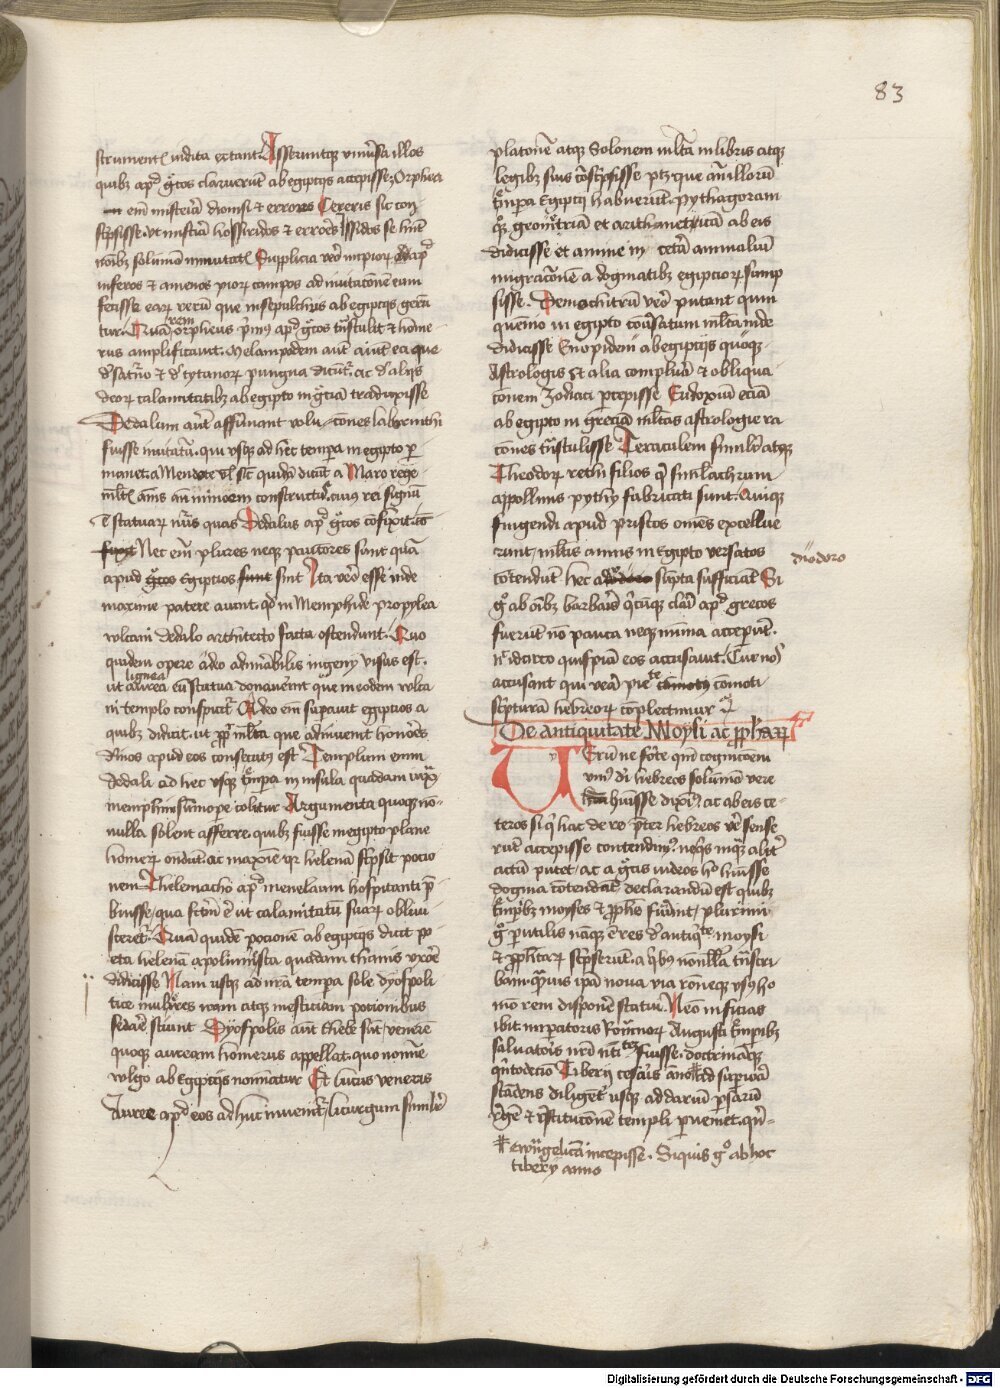 83
strument indita extant. Asseruntque universa illos
quibus apud grecos claruerunt ab egiptiis accepisse. Orphea
enim misteria dionisi et errores Cereris sic con
scripsisse. ut misteria hosiridos et errores Isidos se hnt
nominibus solum inmutatis Supplicia vero impiorum apud
inferos et amenos piorum campos ad invitationem eum
fecisse earum rerum que in sepulchris ab egiptiis gerun
tur. Quam rem orpheus primus apud grecos transtulit et home
rus amplificavit. Melampodem autem aiunt ea que
de saturno et de tytanorum pungna dicuntur. ac de aliis
deorum calamitatibus ab egipto in greciam traduxisse
Dedalum autem affirmant volutiones laberinthi
fuisse imitatum. qui usque ad hec tempora in egipto per
manet. a Mendete vel sicut quidam dicunt a Maro rege
multis annis ante minoem constructus. cuius rei signum
statuarum numerus quas Dedalus apud grecos confixit. con
Nec enim plures neque pauciores sunt quam
apud Egiptios sint Ita vero esse inde
maxime patere aiunt. quod in Memphide propylea
vulcani dedalo architecto facta ostendunt. Quo
quidem opere adeo admirabilis ingenii visus est.
lignea
ut aurea eum statua donaverint que in eodem vulca
ni templo conspicitur Adeo enim superavit egiptios a
quibus didicit. ut propter multa que adinvenit honores
divinos apud eos consecutus est Templum enim
dedali ad hec usque tempora in insula quadam iuxta
memphim summopere colitur Argumenta quoque non
nulla solent afferre. quibus fuisse in egipto plane
homerum ostendunt. ac maxime quia helenam scripsit potio
nem Thelemacho apud menelaum hospitanti pre
buisse, qua factum est ut calamitatum suarum oblivi
sceretur. Quam quidem potionem ab egiptiis dicit po
eta helenam a polimnesta quadam thanis uxore
didicisse Nam usque ad nostra tempora sole dyospoli
tice mulieres iram atque mesticiam potionibus
sedare sciunt Dyospolis autem thebe sunt. venerem
quoque auream homerus appellat. quo nomine
vulgo ab Egiptiis nominatur Et lucus veneris
Auree apud eos ad huc invenitur. licurgum similiter
platonem atque Solonem multa in libris atque
legibus suis conscripsisse putant que antea illorum
tempora Egiptii habuerunt. pythagoram
quoque geometriam et arithmetricam ab eis
didicisse et anime in cetera animalium
migrationem a dogmatibus egiptiorum sump
sisse. Democritum vero putant quin
quennio in egipto conversatum multa inde
didicisse Enopidem ab egiptiis quoque
Astrologis et alia complura et obliqua
tionem Zodiaci percepisse Eudoxum etiam
ab egipto in greciam multas astrologie ra
tiones transtulisse Teraculem similiter atque
Theodorum reti filios qui simulachrum
appollinis pythii fabricati sunt. Quique
fingendi apud priscos omnes excellue
runt, multis annis in Egipto versatos
contendunt hec a supra sufficiant Si
diodoro
ergo ab omnibus barbaris quicumque clari apud grecos
fuerunt non pauca neque minima acceperunt.
nec idcirco quispiam eos accusavit. Cur nos
accusant qui vera pietate comoti
scripturam hebreorum complectimur
De antiquitate Moysi ac prophetarum
Verum ne forte quoniam cognicionem
unius dei hebreos solum vere
habuisse diximus, ac ab eis ce
teros si qui hac de re preter hebreos vere sense
runt accepisse contendimus, nequis inquam aliter
actum putet, ac a grecis iudeos hoc habuisse
dogma contendat declarandum est quibus
temporibus moyses et prophete fuerint, plurimi
ergo perutilis namque est res de antiquitate moysi
et prophetarum scripserunt. a quibus nonnulla transcri
bam. quamvis ipsam nova via rationeque usus ho
mo rem disponere statui. Nemo inficias
ibit imperatoris Romanorum Augusti temporibus
salvatoris nostri nativitatem fuisse. doctrinamque
quintodecimo Tiberii cesaris anno ad superiora
scandens diligenter usque ad darium persarum
regem et restitucionem templi perveniet. quin
ewangelicam incepisse. Siquis ergo ab hoc
tiberii anno
Digitalisierung gefördert durch die Deutsche Forschungsgemeinschaft - DFG